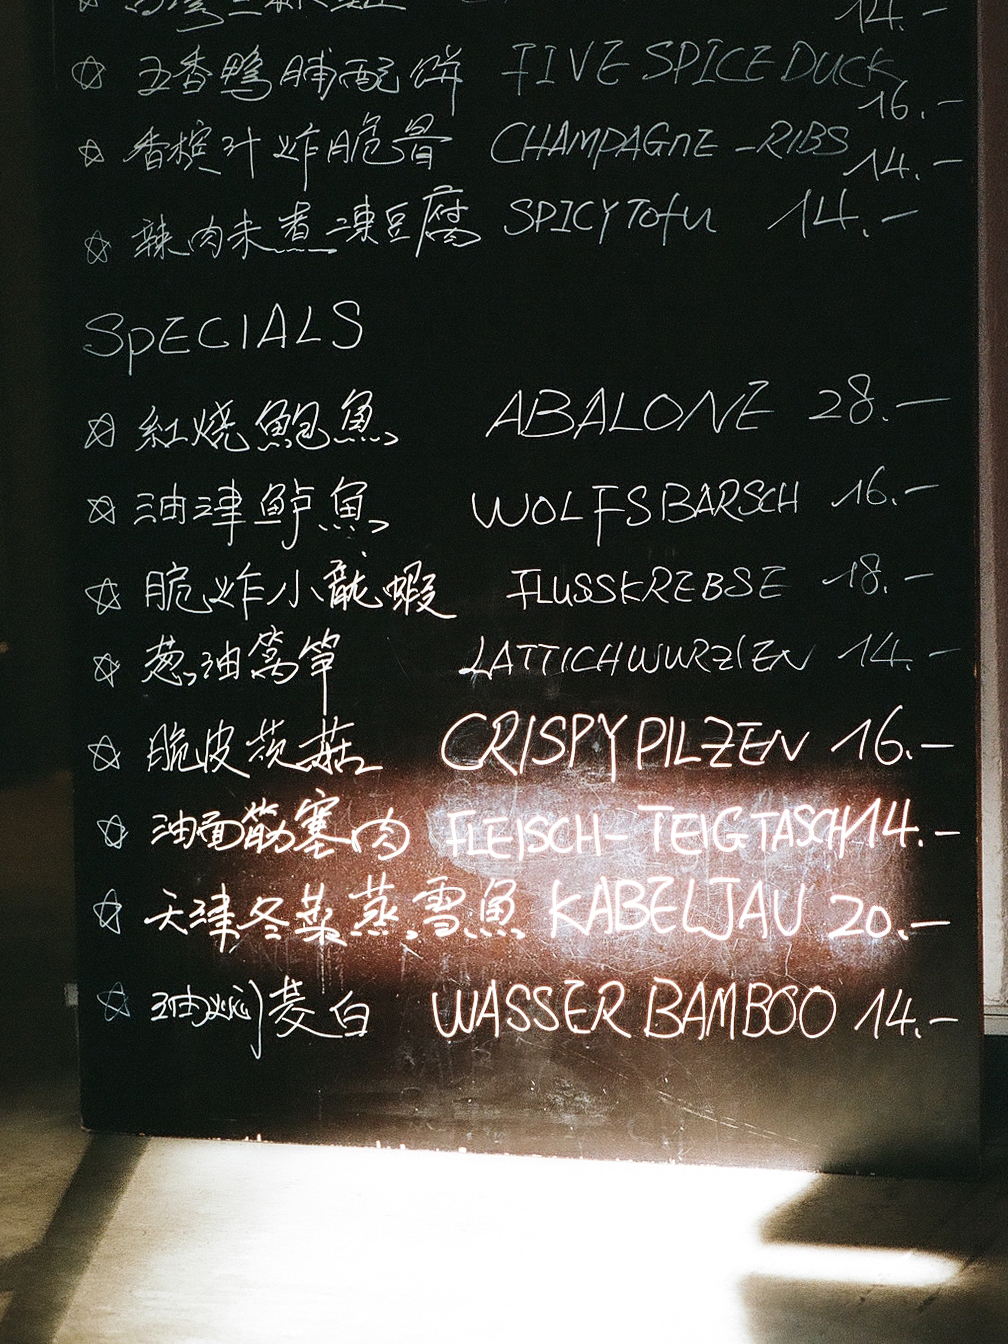 14.-
五香鴨脯配餅 FIVE SPICE DUCK 16.-
香檳汁炸脆骨 CHAMPAGNE-RIBS 14.-
辣肉末煮凍豆腐 SPICY TOFU 14.-
SPECIALS
紅燒鮑魚 ABALONE 28.-
油津鲈魚 WOLFSBARSCH 16.-
脆炸小龍蝦 FLUSSKREBSE 18.-
葱油萵笋 LATTICHWURZLEN 14.-
脆皮茨菇 CRISPY PILZEN 16.-
油面筋塞肉 FLEISCH-TEIGTASCH 14.-
天津冬菜蒸雪魚 KABELJAU 20.-
油焖茭白 WASSER BAMBOO 14.-